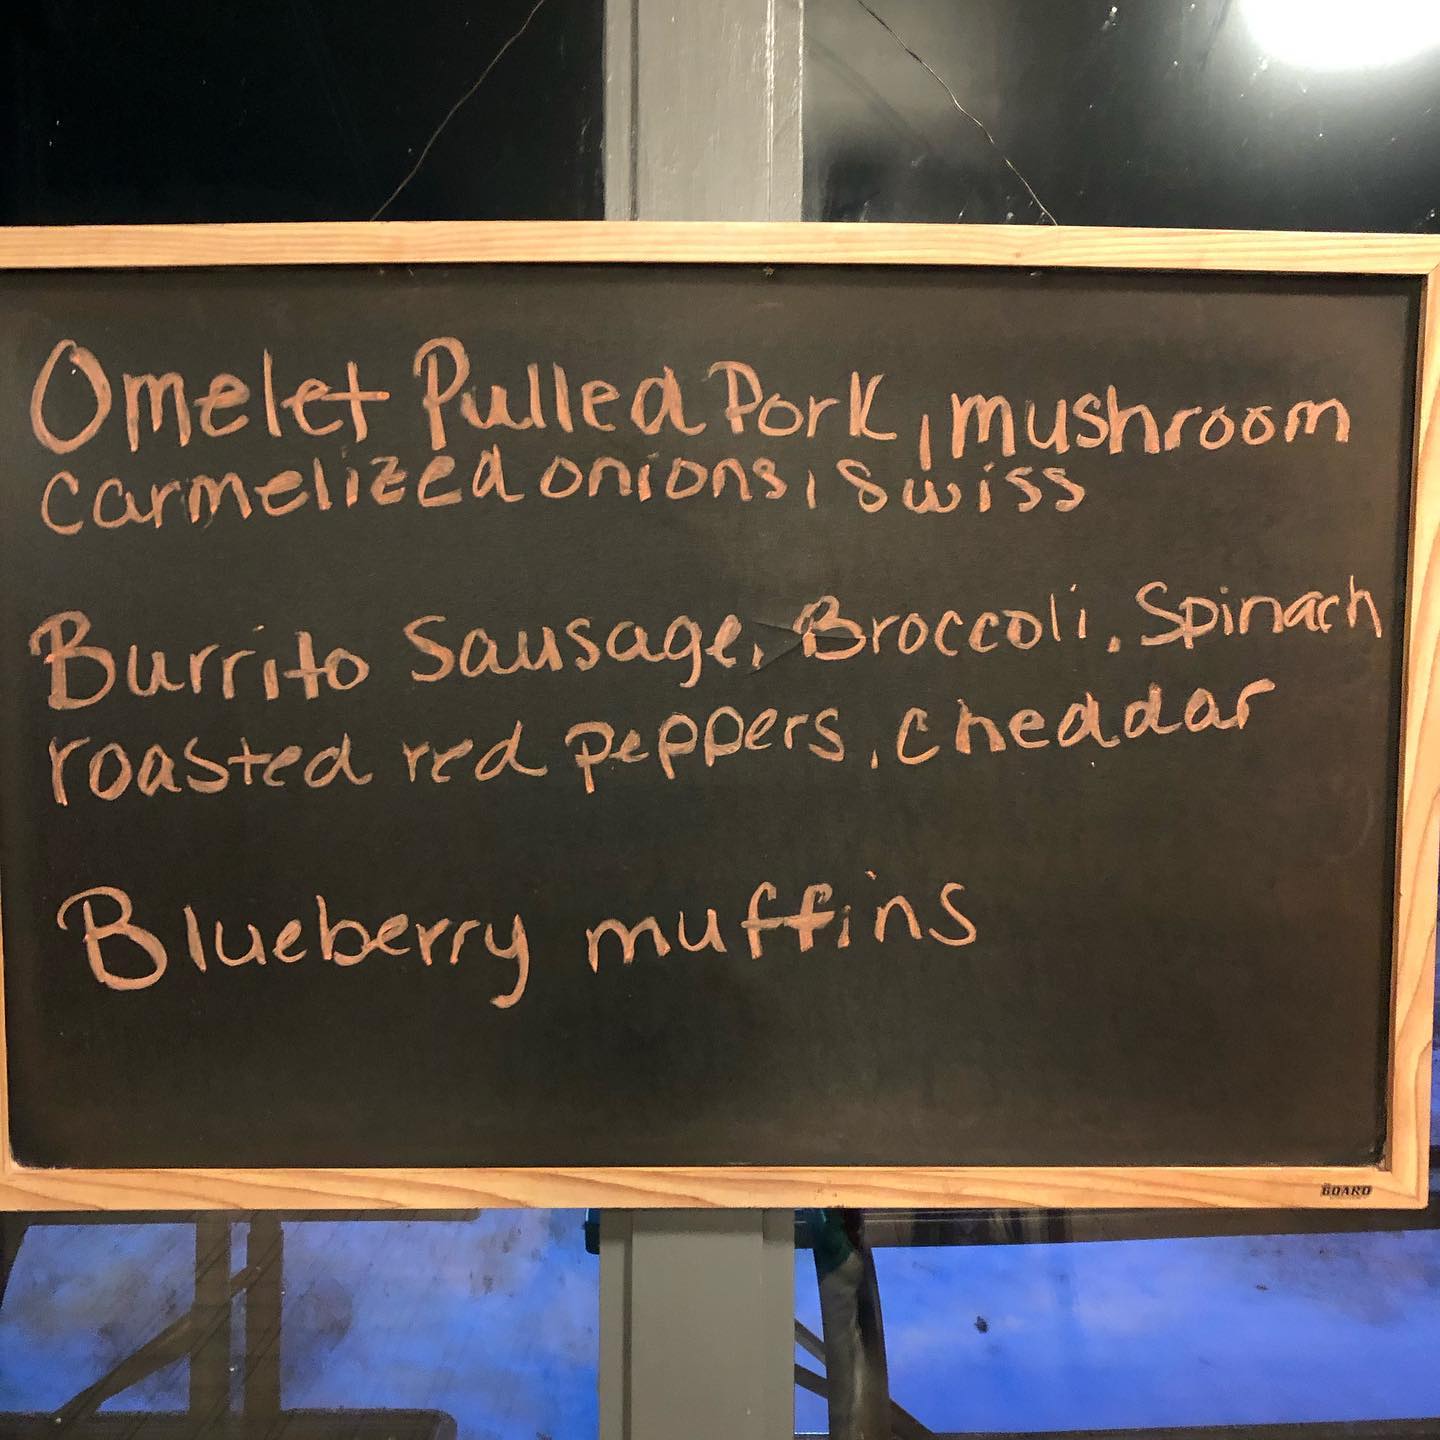 Omelet Pulled Pork, mushroom
carmelized onions, Swiss
Burrito Sausage, Broccoli, Spinach
roasted red peppers, cheddar
Blueberry muffins
BOARD